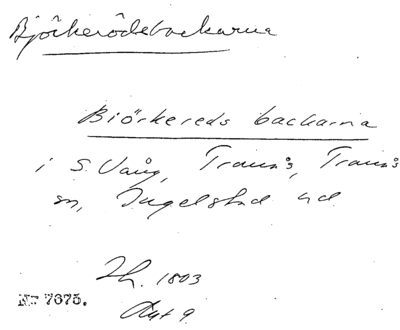 Björkerödebackarna
Biörkereds backarna
i S. Vång, Tranås, Tranås
sn, Ingelstad hd
Lh. 1803
Akt 9
Nr 7675.